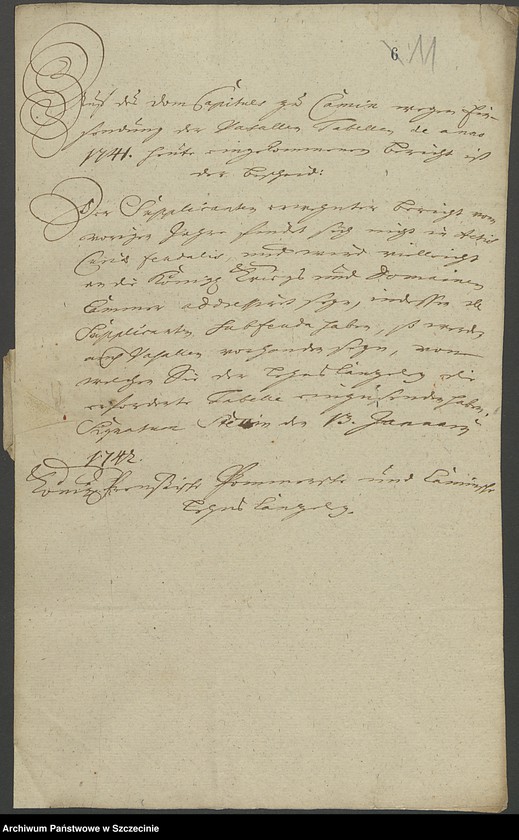 6 11
Auf des dom Capituls zu Camin wegen Ein-
sendung der Vasallen Tabellen de anno
1741. heute eingekommenen Bericht ist
der Bescheid:
Der Supplicanten erwehnter Bericht vom
vorigen Jahre findet sich nicht in Actis
Curiæ feudalis, und wird vielleicht
an die Königl. Kriegs und Domainen
Cammer addressirt seyn, indessen da
Supplicanten Subfeuda haben, so werden
auch Vasallen vorhanden seyn, von
welchen Sie der Lehns Cantzeley die
erforderte Tabelle einzusenden haben.
Signatum Stettin den 13. Januarii
1742.
Königl. Preußische Pommersche und Caminsche
Lehns Cantzeley.
Archiwum Państwowe w Szczecinie